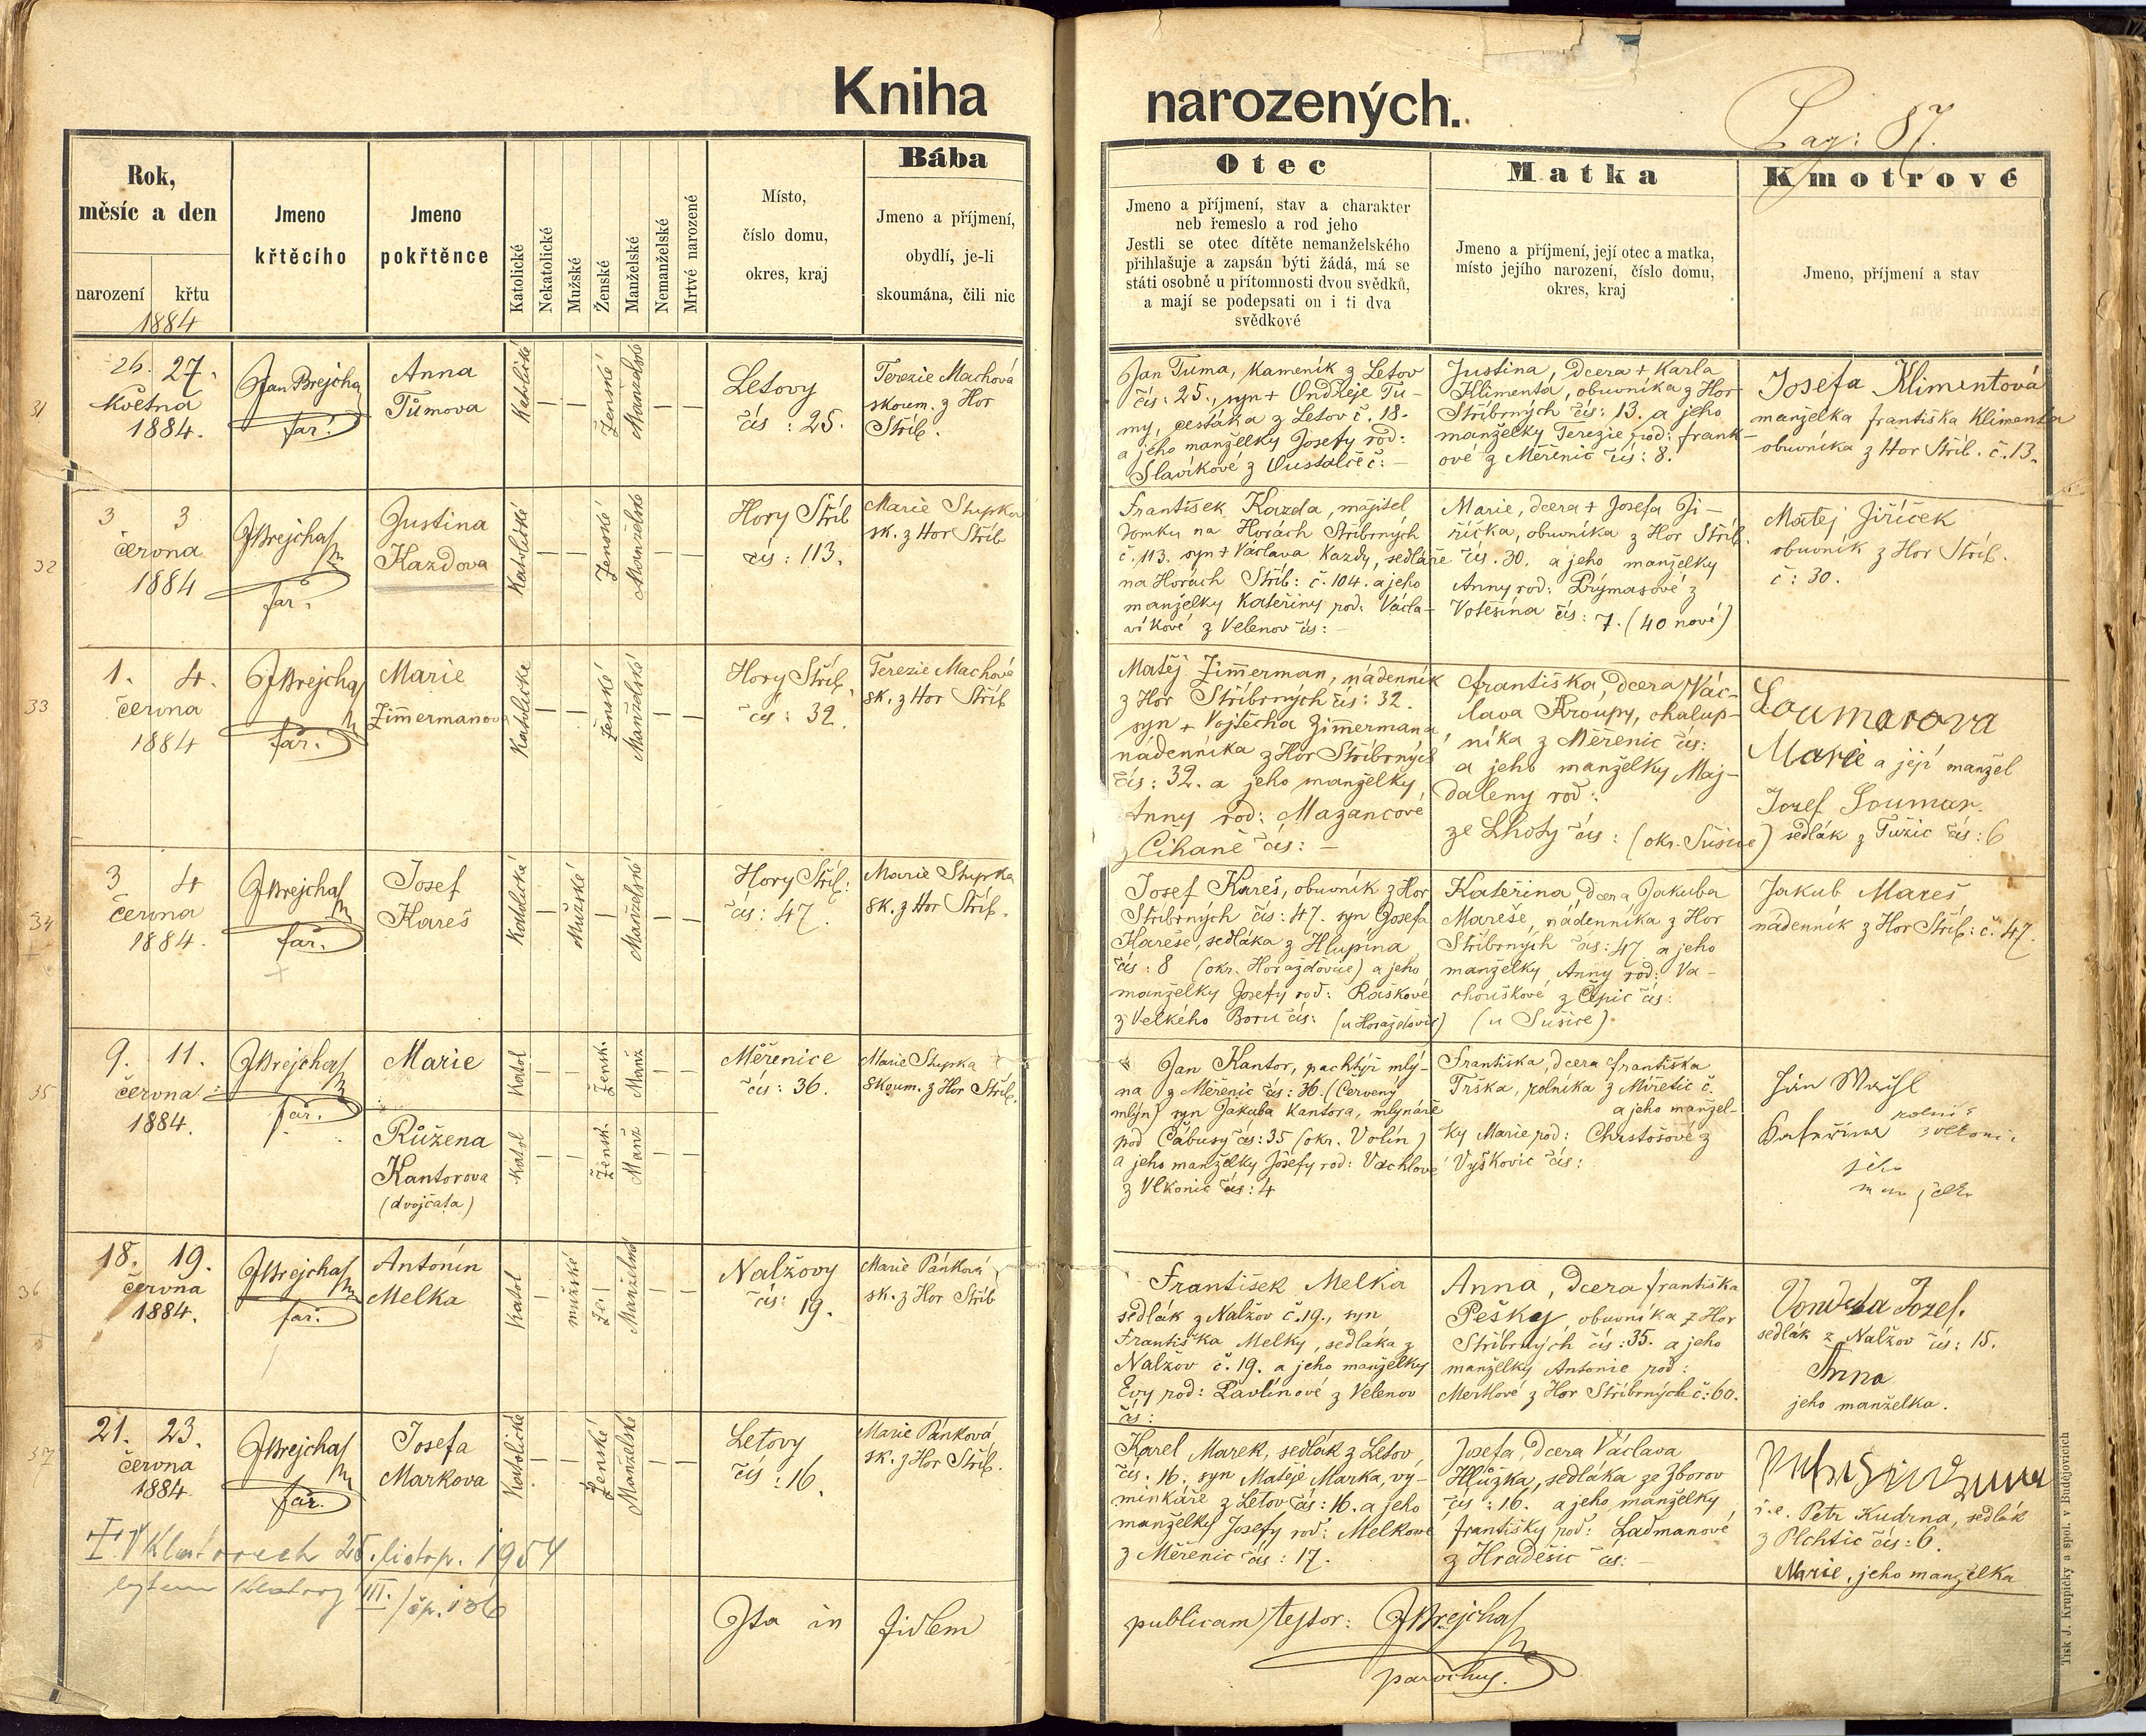 Kniha
narozených.
Pag: 87.
Rok,
měsíc a den
narození
křtu
1884
Jmeno
křtěcího
Jmeno
pokřtěnce
Katolické
Nekatolické
Mužské
Ženské
Manželské
Nemanželské
Mrtvé narozené
Místo,
číslo domu,
okres, kraj
Bába
Jmeno a příjmení,
obydlí, je-li
skoumána, čili nic
Otec
Jmeno a příjmení, stav a charakter
neb řemeslo a rod jeho
Jestli se otec dítěte nemanželského
přihlašuje a zapsán býti žádá, má se
státi osobně u přítomnosti dvou svědků,
a mají se podepsati on i ti dva
svědkové
Matka
Jmeno a příjmení, její otec a matka,
místo jejího narození, číslo domu,
okres, kraj
Kmotrové
Jmeno, příjmení a stav
31
26. 27.
Května
1884.
Jan Brejcha
far.
Anna
Tůmova
Katolické
Ženské
Manželské
Letovy
čís: 25.
Terezie Machová
skoum. z Hor
Stříb.
Jan Tuma, kameník z Letov
čís: 25., syn + Ondřeje Tu-
my, cestáka z Letov č. 18.
a jeho manželky Josefy rod:
Slavíkové z Oustalče č: -
Justina, dcera + Karla
Klimenta, obuvníka z Hor
Stříbrných čís: 13. a jeho
manželky Terezie rod: Frank-
ové z Měřenic čís: 8.
Josefa Klimentová
manželka františka Klimenta
obuvníka z Hor Stříb. č. 13.
32
3. 3
června
1884
JBrejcha
far.
Justina
Kazdova
Katolické
Ženské
Manželské
Hory Stříb
čís: 113.
Marie Stupka
sk. z Hor Stříb
František Kazda, majitel
domku na Horách Stříbrných
č. 113. syn + Václava Kazdy, sedláře
na Horách Stříb: č. 104. a jeho
manželky Kateřiny rod: Václa-
víkové z Velenov čís: -
Marie, dcera + Josefa Ji-
říčka, obuvníka z Hor Stříb.
čís. 30. a jeho manželky
Anny rod: Prýmasové z
Votěšína čís: 7. (40 nové)
Matěj Jiříček
obuvník z Hor Stříb.
č: 30.
33
1. 4.
června
1884
JBrejcha
far.
Marie
Zimermanova
Katolické
Ženské
Manželské
Hory Stříb.
čís: 32.
Terezie Machová
sk. z Hor Stříb
Matěj Zimerman, nádenník
z Hor Stříbrných čís: 32.
syn + Vojtěcha Zimermana,
nádenníka z Hor Stříbrných
čís: 32. a jeho manželky
Anny rod: Mazancové
z Číhaně čís: -
Františka, dcera Vác-
lava Kroupy, chalup-
níka z Měřenic čís:
a jeho manželky Maj-
daleny rod:
ze Lhoty čís: (okr. Sušice)
Soumarova
Marie a její manžel
Jozef Soumar
sedlák z Tužic čís: 6
34
3 4
června
1884.
JBrejcha
far.
Josef
Kareš
Katolické
Mužské
Manželské
Hory Stříb:
čís: 47.
Marie Stupka
sk. z Hor Stříb.
Josef Kareš, obuvník z Hor
Stříbrných čís: 47. syn Josefa
Kareše, sedláka z Hlupína
čís: 8 (okr. Horažďovice) a jeho
manželky Josefy rod: Raškové
z Velkého Boru čís: (u Horažďovic)
Kateřina, dcera Jakuba
Mareše, nádenníka z Hor
Stříbrných čís: 47 a jeho
manželky Anny rod: Va-
chouškové z Čepic čís:
(u Sušice).
Jakub Mareš
nádenník z Hor Stříb: č. 47.
35
9. 11.
června
1884.
JBrejcha
far.
Marie
Růžena
Kantorova
(dvojčata)
Katol
Žensk.
Manž
Katol
Žensk.
Manž
Měřenice
čís: 36.
Marie Stupka
skoum. z Hor Stříb.
Jan Kantor, pachtýř mlý-
na z Měřenic čís: 36. (Červený
mlýn) syn Jakuba Kantora, mlynáře
pod Čábusy čís: 35 (okr. Volín)
a jeho manželky Josefy rod: Vachlové
z Vlkonic čís: 4
Františka, dcera františka
Trška, rolníka z Miřetic č.
a jeho manžel-
ky Marie rod: Chrstošové z
Vyškovic čís:
Ján
rolník
jeho
manželka
36
18. 19.
června
1884.
JBrejcha
far.
Antonín
Melka
Katol
mužské
Manželské
Nalžovy
čís: 19.
Marie Pánková
sk. z Hor Stříb
František Melka
sedlák z Nalžov č. 19., syn
Františka Melky, sedláka z
Nalžov č. 19. a jeho manželky
Evy rod: Pavlínové z Velenov
čís:
Anna, dcera františka
Pešky, obuvníka z Hor
Stříbrných čís: 35. a jeho
manželky Antonie rod:
Mertlové z Hor Stříbrných č: 60.
Jozef.
sedlák z Nalžov čís: 15.
Anna
jeho manželka.
37
21. 23.
června
1884.
JBrejcha
far.
Josefa
Markova
Katolické
Ženské
Manželské
Letovy
čís: 16.
Marie Pánková
sk. z Hor Stříb.
Karel Marek, sedlák z Letov
čís. 16. syn Matěje Marka, vý-
minkáře z Letov čís: 16. a jeho
manželky Josefy rod: Melkové
z Měřenic čís: 17.
Josefa, dcera Václava
Hlůžka, sedláka ze Zborov
čís: 16. a jeho manželky
františky rod: Ladmanové
z Hradešic čís: -
i.e. Petr Kudrna, sedlák
z Plchtic čís: 6.
Marie, jeho manželka
V Klatovech 25. listop. 1954
bytem Klatovy III. / čp. 136
Ita in fidem
publicam testor: JBrejcha
parochus.
Tisk J. Krupičky a spol. v Budějovicích